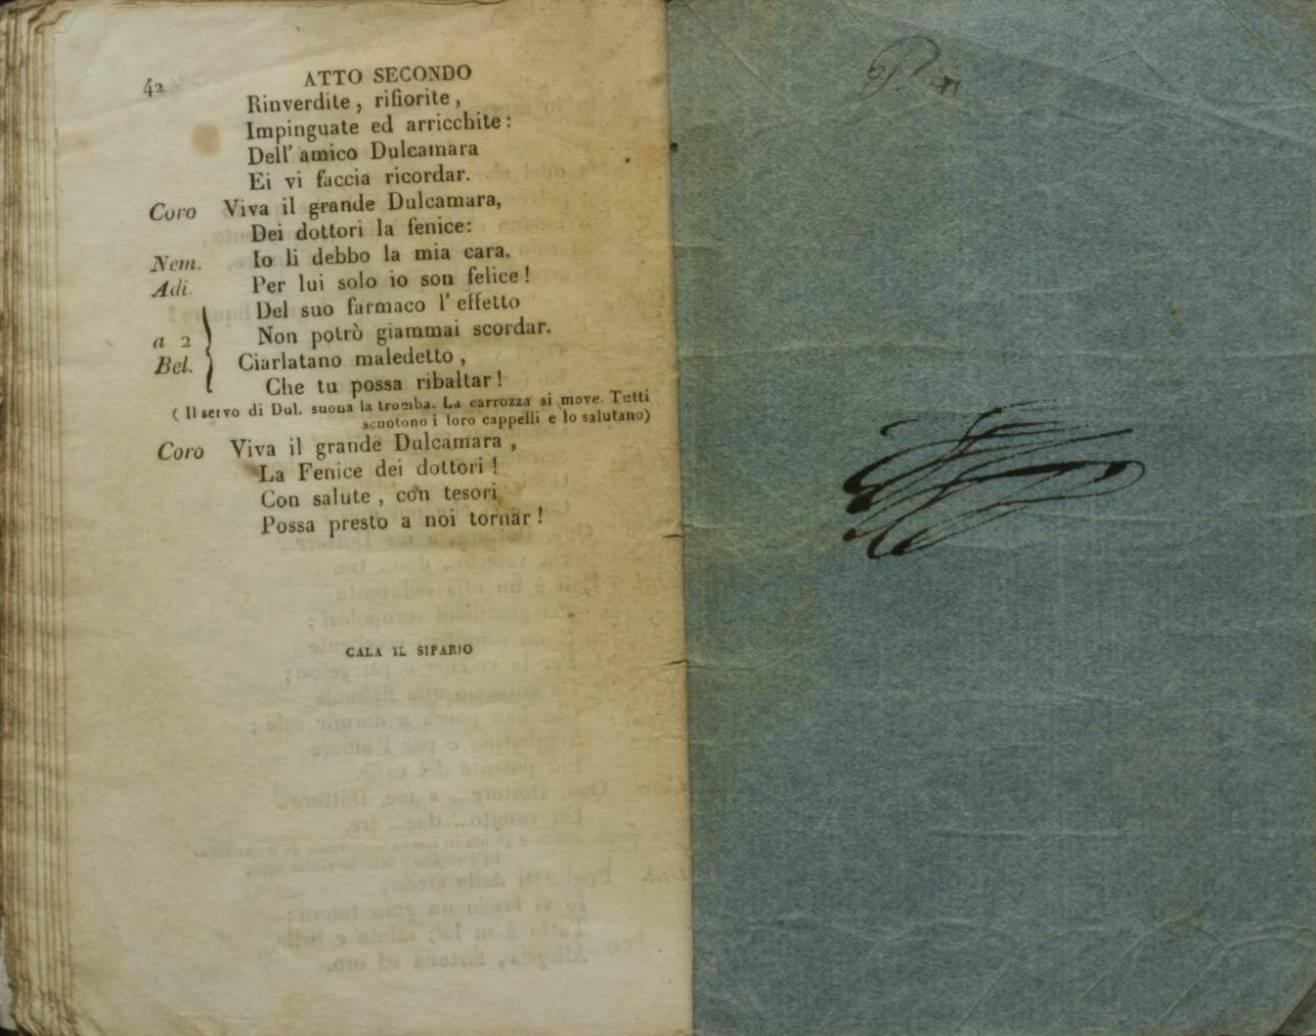 42 ATTO SECONDO
Rinverdite, rifiorite,
Impinguate ed arricchite:
Dell' amico Dulcamara
Ei vi faccia ricordar.
Coro Viva il grande Dulcamara,
Dei dottori la fenice:
Nem. Io li debbo la mia cara.
Adi. Per lui solo io son felice!
Del suo farmaco l' effetto
a 2 Non potrò giammai scordar.
Bel. Ciarlatano maledetto,
Che tu possa ribaltar!
( Il servo di Dul. suona la tromba. La carrozza si move. Tutti
scuotono i loro cappelli e lo salutano)
Coro Viva il grande Dulcamara,
La Fenice dei dottori!
Con salute, con tesori
Possa presto a noi tornar!
CALA IL SIPARIO